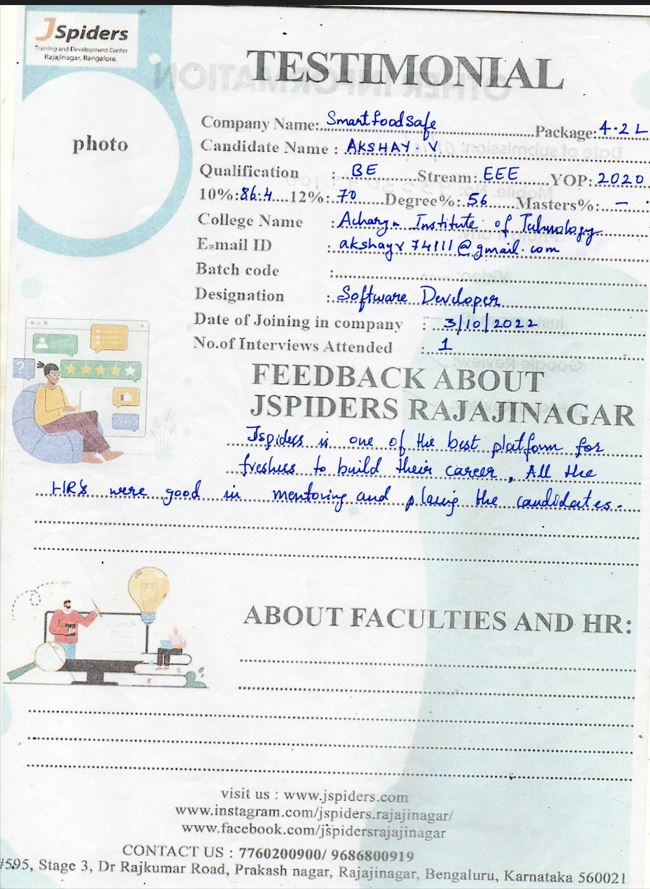 JSpiders
Training and Development Center
Rajajinagar, Bangalore.
TESTIMONIAL
photo
Company Name: SmartFoodSafe Package: 4.2 L
Candidate Name : AKSHAY . V
Qualification : BE Stream: EEE YOP: 2020
10%: 86.4 12%: 70 Degree%: 56 Masters%: –
College Name : Acharya Institute of Technology
E-mail ID : akshayv74111@gmail.com
Batch code :
Designation : Software Developer
Date of Joining in company : 3/10/2022
No.of Interviews Attended : 1
FEEDBACK ABOUT
JSPIDERS RAJAJINAGAR
Jspiders is one of the best platform for
freshers to build their career, All the
HRs were good in mentoring and placing the candidates.
ABOUT FACULTIES AND HR:
visit us : www.jspiders.com
www.instagram.com/jspiders.rajajinagar/
www.facebook.com/jspidersrajajinagar
CONTACT US : 7760200900/ 9686800919
#595, Stage 3, Dr Rajkumar Road, Prakash nagar, Rajajinagar, Bengaluru, Karnataka 560021